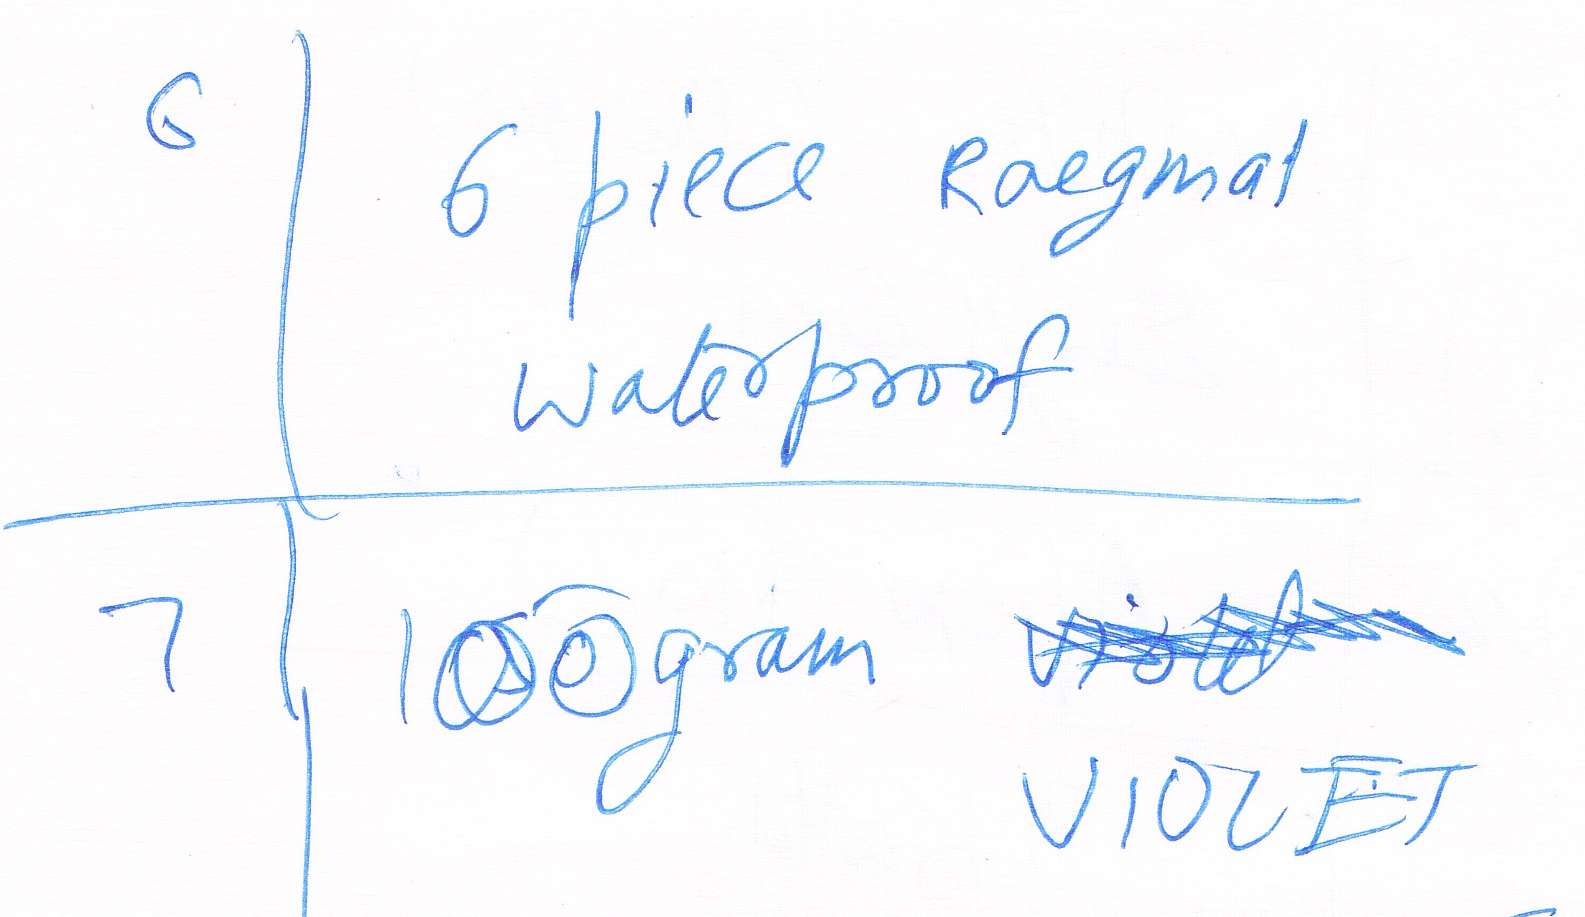 6 6 piece Raegmal
waterproof
7 100 gram
VIOLET